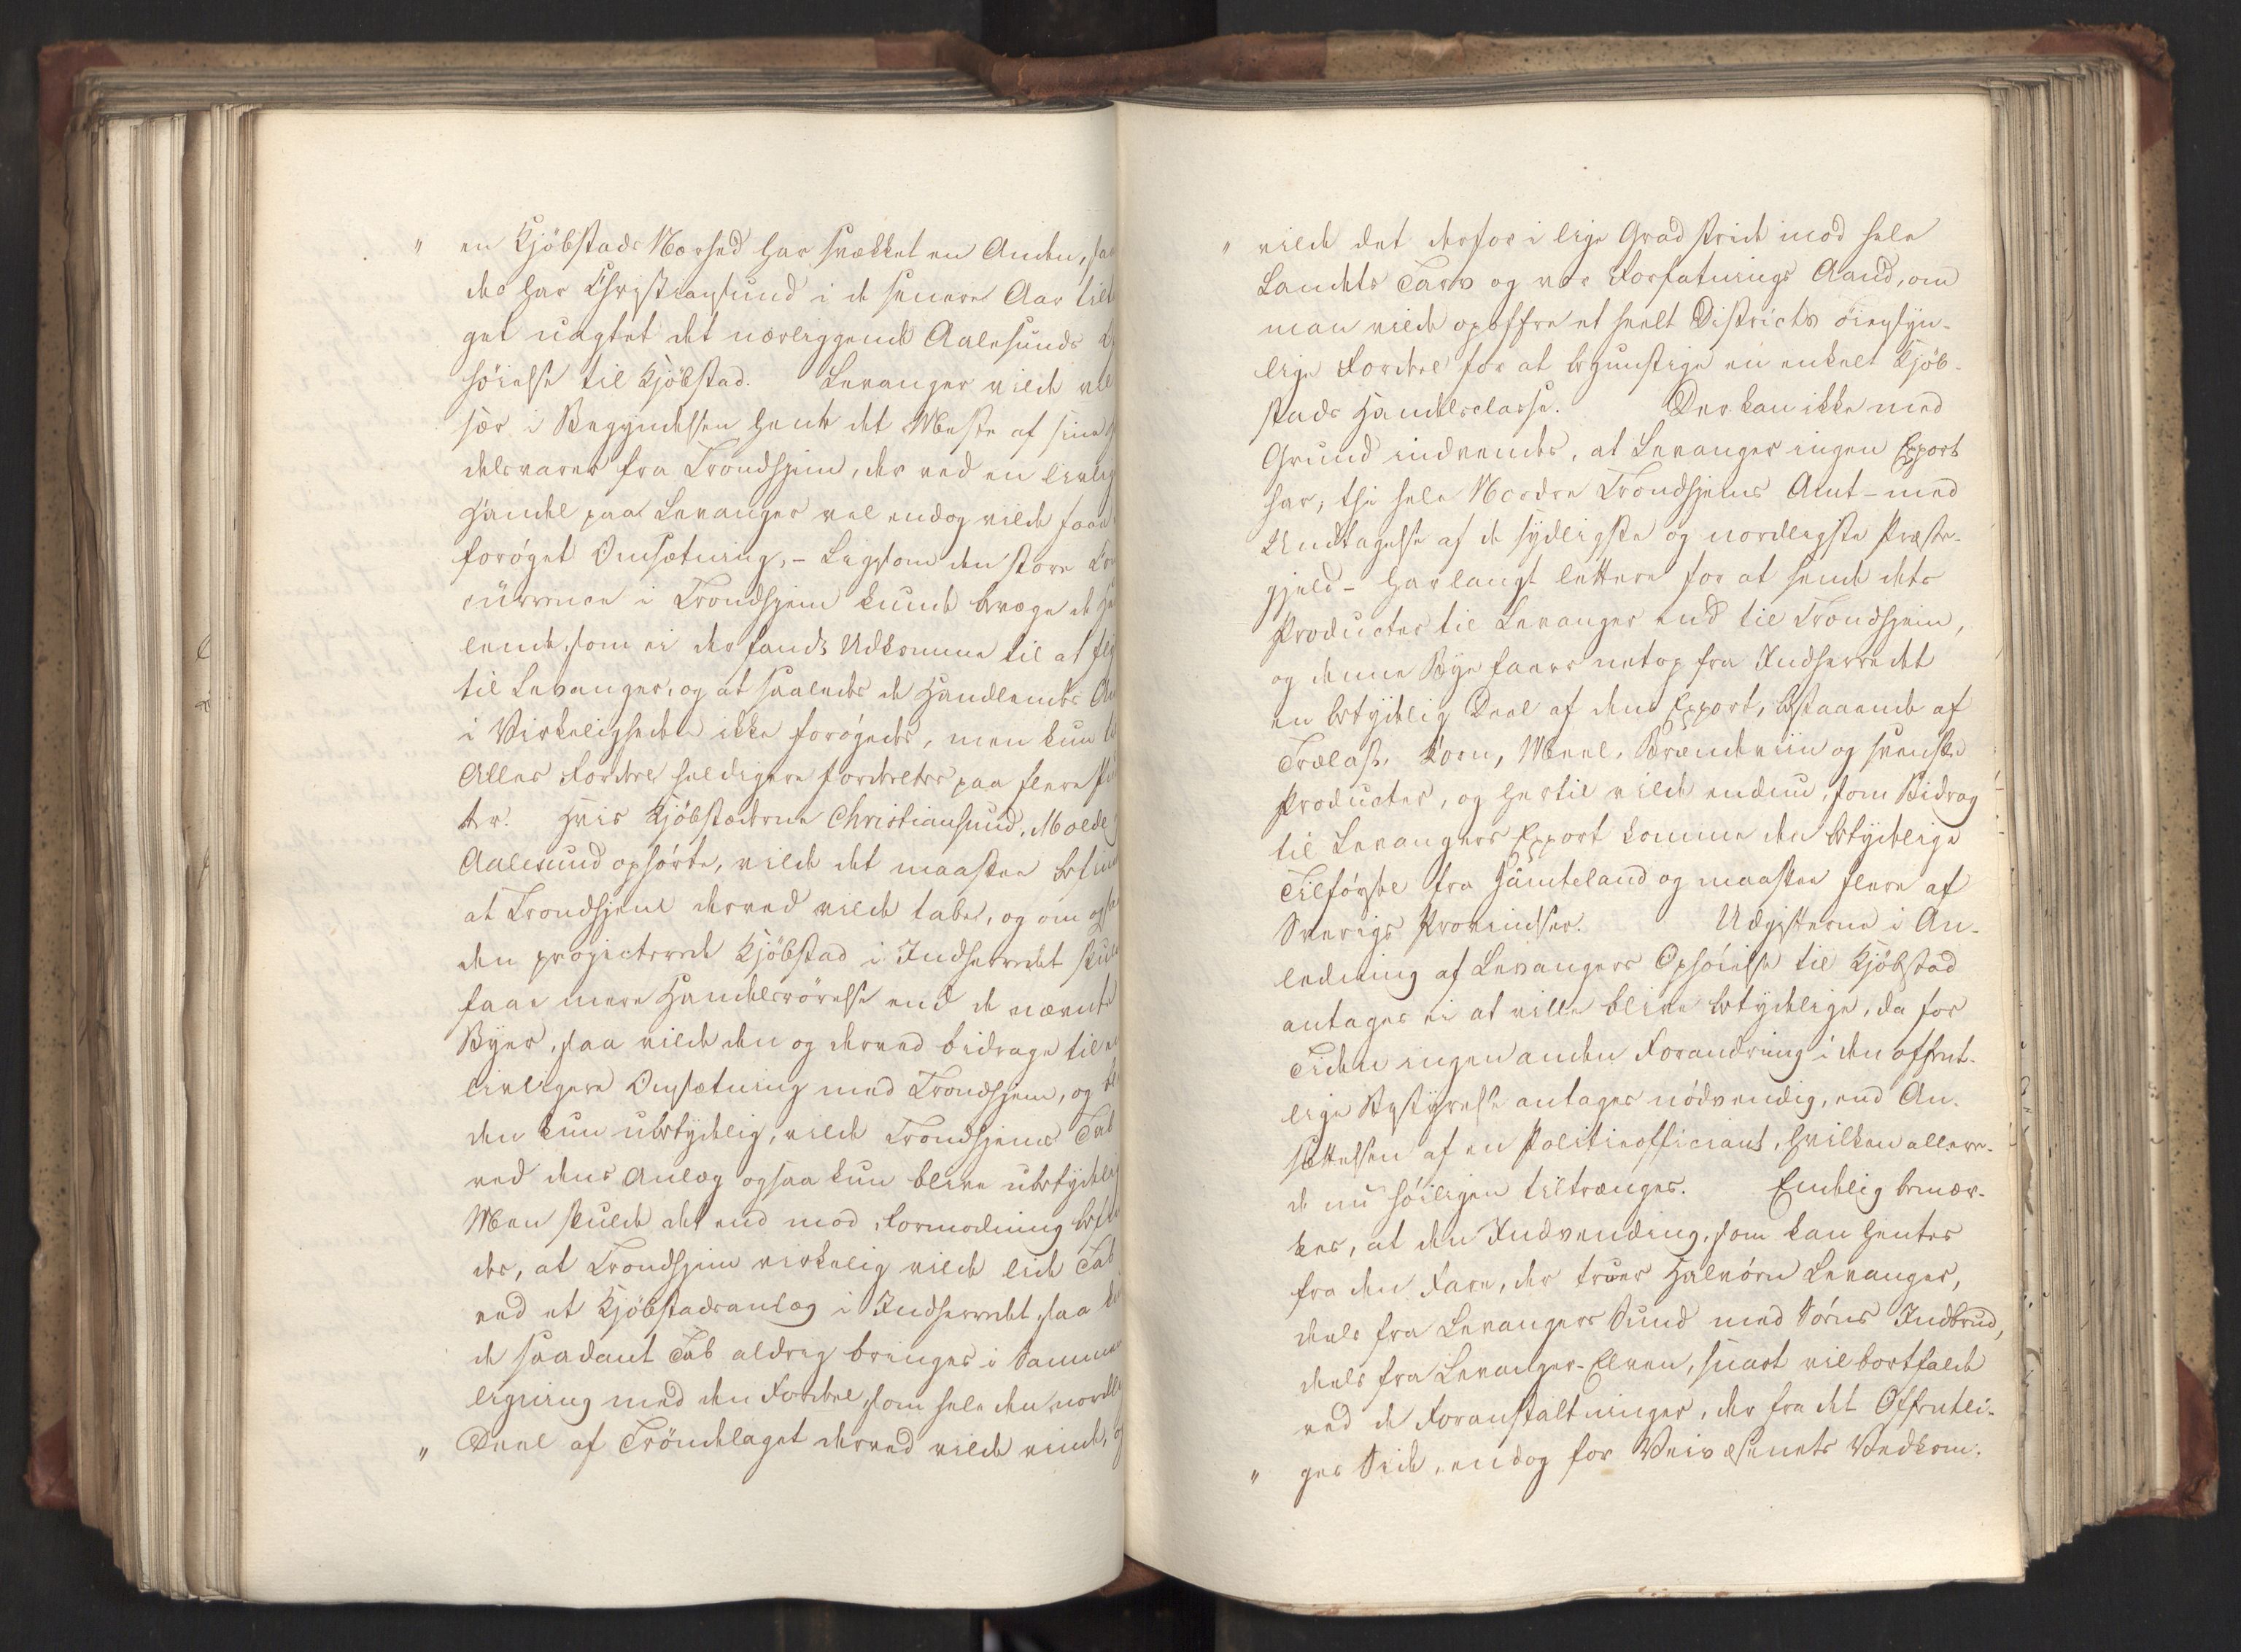 " en Kjöbstads Nærhed har svækket en Anden, saa
des har Christiansund i de senere Aar tilt
get uagtet det nærliggende Aalesunds
höielse til Kjöbstad. Levanger vilde vel
sær i Begyndelsen hente det Meste af sine
delsvarer fra Trondhjem, der ved en livlig
Handel paa Levanger vel endog vilde faae
forøget Omsætning, - Ligesom den store Con
currence i Trondhjem kunde bevæge de Ha
lende, som ei der fandt Udkomme til at fly
til Levanger, og at saaledes de Handlendes An
i Virkeligheden ikke forøgedes, men kun til
Alles Fordeel heldigere fordeeltes paa flere St
der. Hvis Kjöbstæderne Christiansund, Molde
Aalesund ophørte, vilde det maaskee befin
at Trondhjem derved vilde tabe, og om ogsa
den projecterede Kjöbstad i Indherredet skul
faae mere Handelsrörelse end de nævnte
Byer, saa vilde den og derved bidrage til en
livligere Omsætning med Trondhjem, og ble
den kun ubetydelig, vilde Trondhjems Tab
ved dens Anlæg ogsaa kun blive ubetydelig
Men skulde det end mod Formodning befin
des, at Trondhjem virkelig vilde lide Tab
ved et Kjöbstadsanlæg i Indherredet, saa
de saadant Tab aldrig bringes i Sammen
ligning med den Fordeel, som hele den nordli
" Deel af Tröndelaget derved vilde vinde, og
" vilde det derfor i lige Grad stride mod hele
Landets Tarv og vor Forfatnings Aand, om
man vilde opoffre et heelt Districts öiensyn-
lige Fordeel for at begunstige en enkelt Kjöb-
stads Handelsclasse. Der kan ikke med
Grund indvendes, at Levanger ingen Export
har, thi hele Nordre Trondhjems Amt - med
Undtagelse af de sydligste og nordligste Præste-
gjeld - har langt lettere for at sende dets
Producter til Levanger end til Trondhjem,
og denne Bye faaer netop fra Indherredet
en betydelig Deel af dens Export, bestaaende af
Trælast, Korn, Meel, Brændeviin og svenske
Producter, og hertil vilde endnu, som Bidrag
til Levangers Export komme den betydelige
Tilførsel fra Jämteland og maaskee flere af
Sverigs Provindser. Udgifterne i An-
ledning af Levangers Ophöielse til Kjöbstad
antages ei at ville blive betydelige, da for
Tiden ingen anden Forandring i den offent-
lige Bestyrelse antages nødvendig, end An-
sættelsen af en Politieofficiant, hvilken allere-
de nu høiligen tiltrænges. Endelig bemær-
kes, at den Indvending, som kan hentes
fra den Fare, der truer Halvøen Levanger,
deels fra Levangers Sund med Søens Indbrud,
deels fra Levanger-Elven, snart vil bortfalde
ved de Foranstaltninger, der fra det Offentli-
" ges Side, endog for Veivæsenets Vedkom-